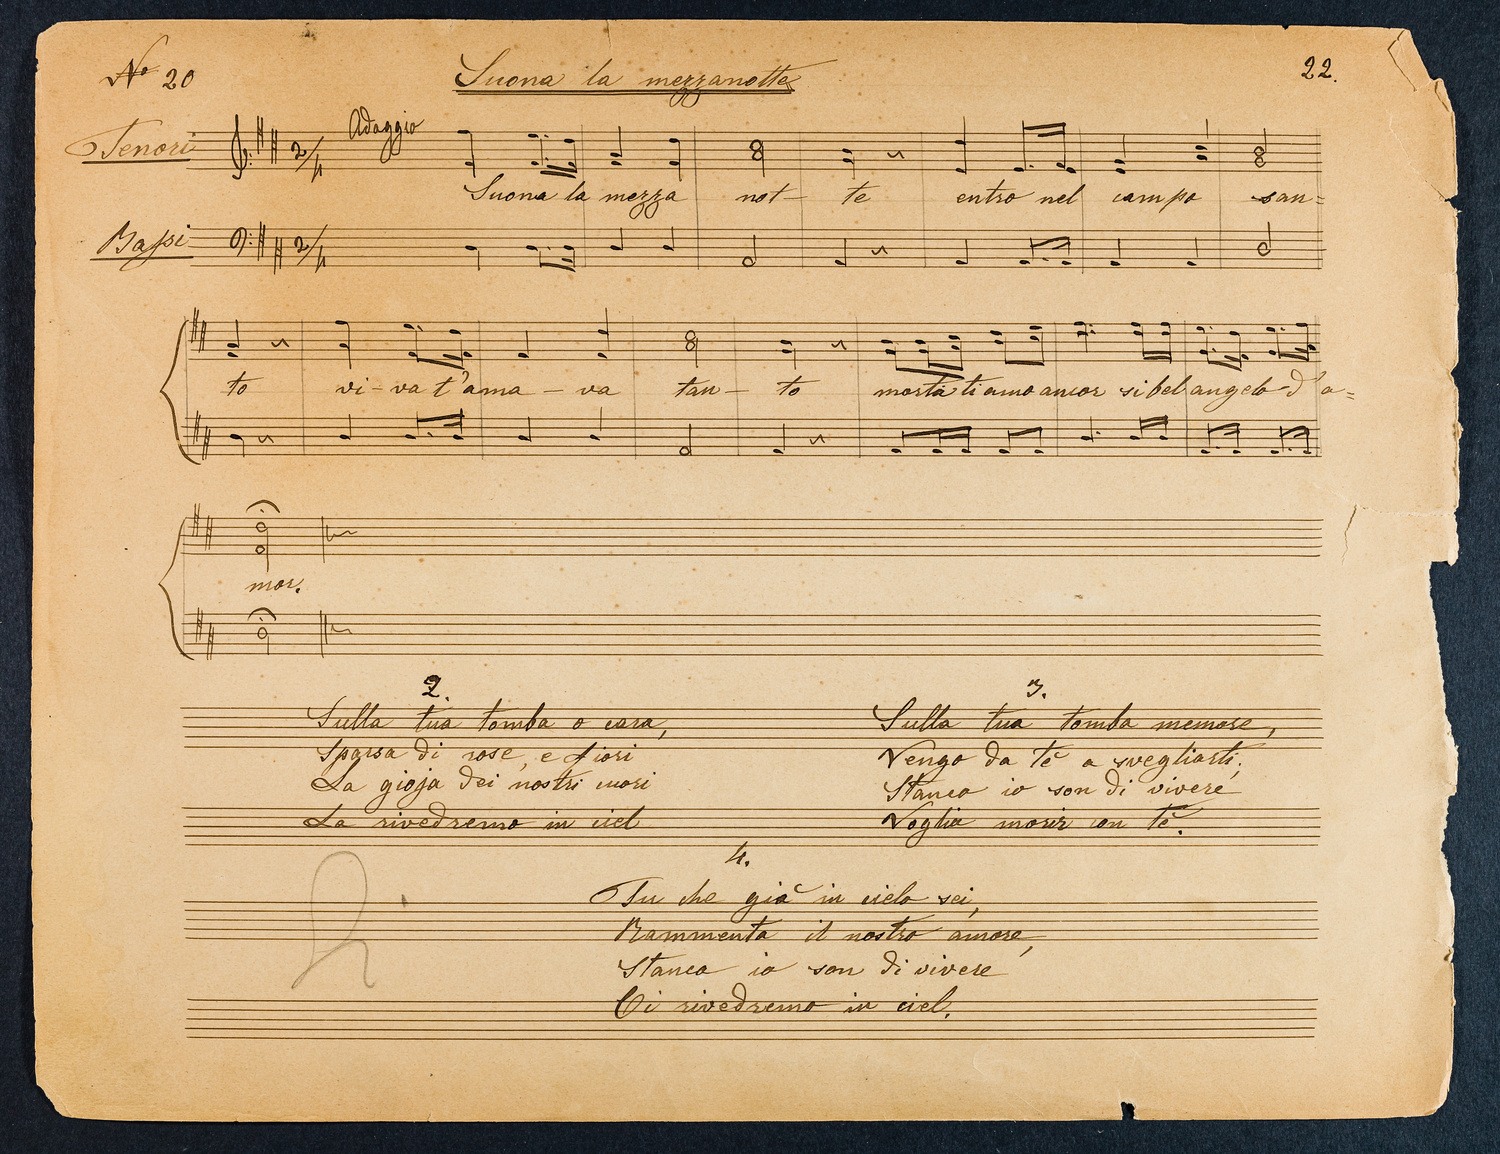 No 20
Suona la mezzanotte
22.
Adaggio
Tenori
2/4
Suona la mezza not- te entro nel campo san=
Bassi
2/4
to vi-va t'ama-va tan-to morta ti amo ancor si bel angelo d'a=
mor.
2.
Sulla tua tomba o cara,
Sparsa di rose, e fiori
La gioja dei nostri cuori
La rivedremo in ciel
3.
Sulla tua tomba memore,
Vengo da tè a svegliarti,
Stanco io son di vivere
Voglia morir con tè.
4.
Tu che già in cielo sei,
Rammenta il nostro amore,
Stanco io son di vivere
Ci rivedremo in ciel.